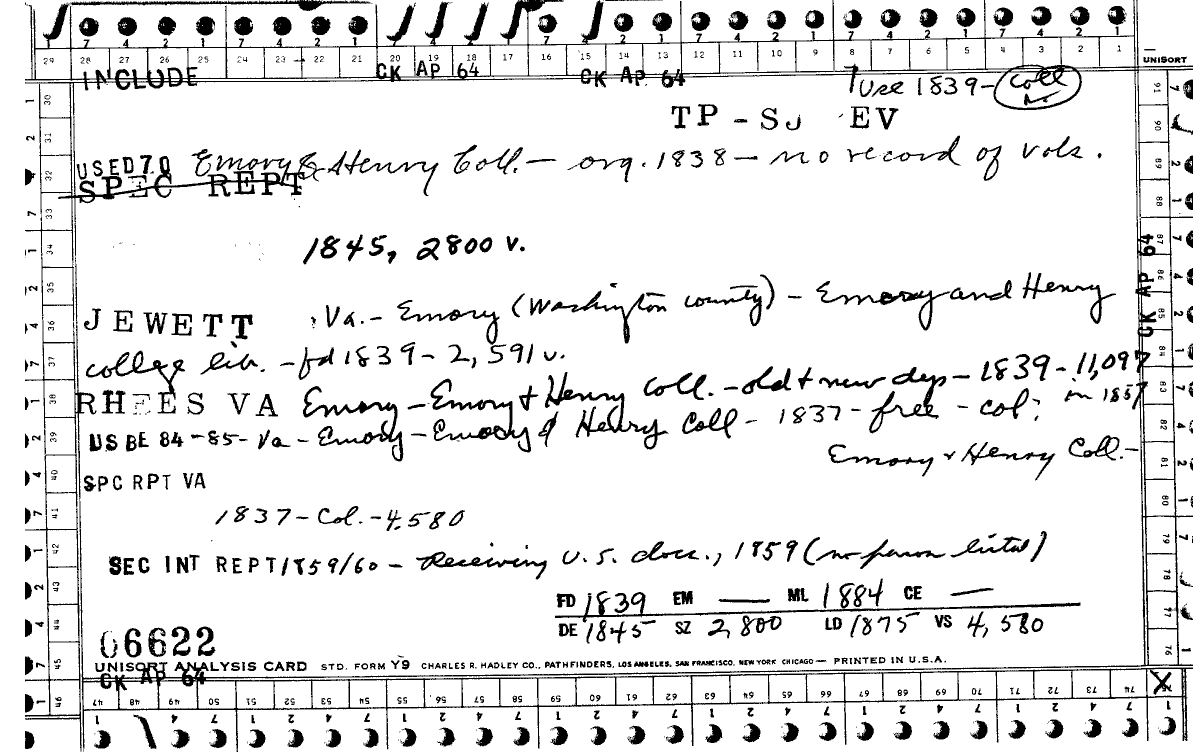 7 4 2 1 7 4 2 1 7 4 2 1 7 4 2 1 7 4 2 1
29 28 27 26 25 24 23 22 21 20 19 18 17 16 15 14 13 12 11 10 9 8 7 6 5 4 3 2 1
UNISORT
INCLUDE CK AP 64 CK AP 64 Use 1839- coll
TP - SJ EV
USED 70 Emory & Henry Coll. - org. 1838 - no record of vols.
SPEC REPT
1845, 2800 v.
CK AP 64
JEWETT Va. - Emory (Washington county) - Emory and Henry
college lib. - fd 1839 - 2,591 v.
RHEES VA Emory - Emory & Henry Coll. - old & new dep - 1839 - 11,097
in 1857
US BE 84-85- Va - Emory - Emory & Henry Coll - 1837 - free - col.
Emory & Henry Coll. -
SPC RPT VA
1837 - Col. - 4,580
SEC INT REPT 1859/60 - Receiving U.S. docs., 1859 (no person listed)
FD 1839 EM — ML 1884 CE —
DE 1845 SZ 2,800 LD 1875 VS 4,580
06622
UNISORT ANALYSIS CARD STD. FORM Y9 CHARLES R. HADLEY CO., PATHFINDERS, LOS ANGELES, SAN FRANCISCO, NEW YORK CHICAGO — PRINTED IN U.S.A.
CK AP 64
47 48 49 50 51 52 53 54 55 56 57 58 59 60 61 62 63 64 65 66 67 68 69 70 71 72 73 74 75